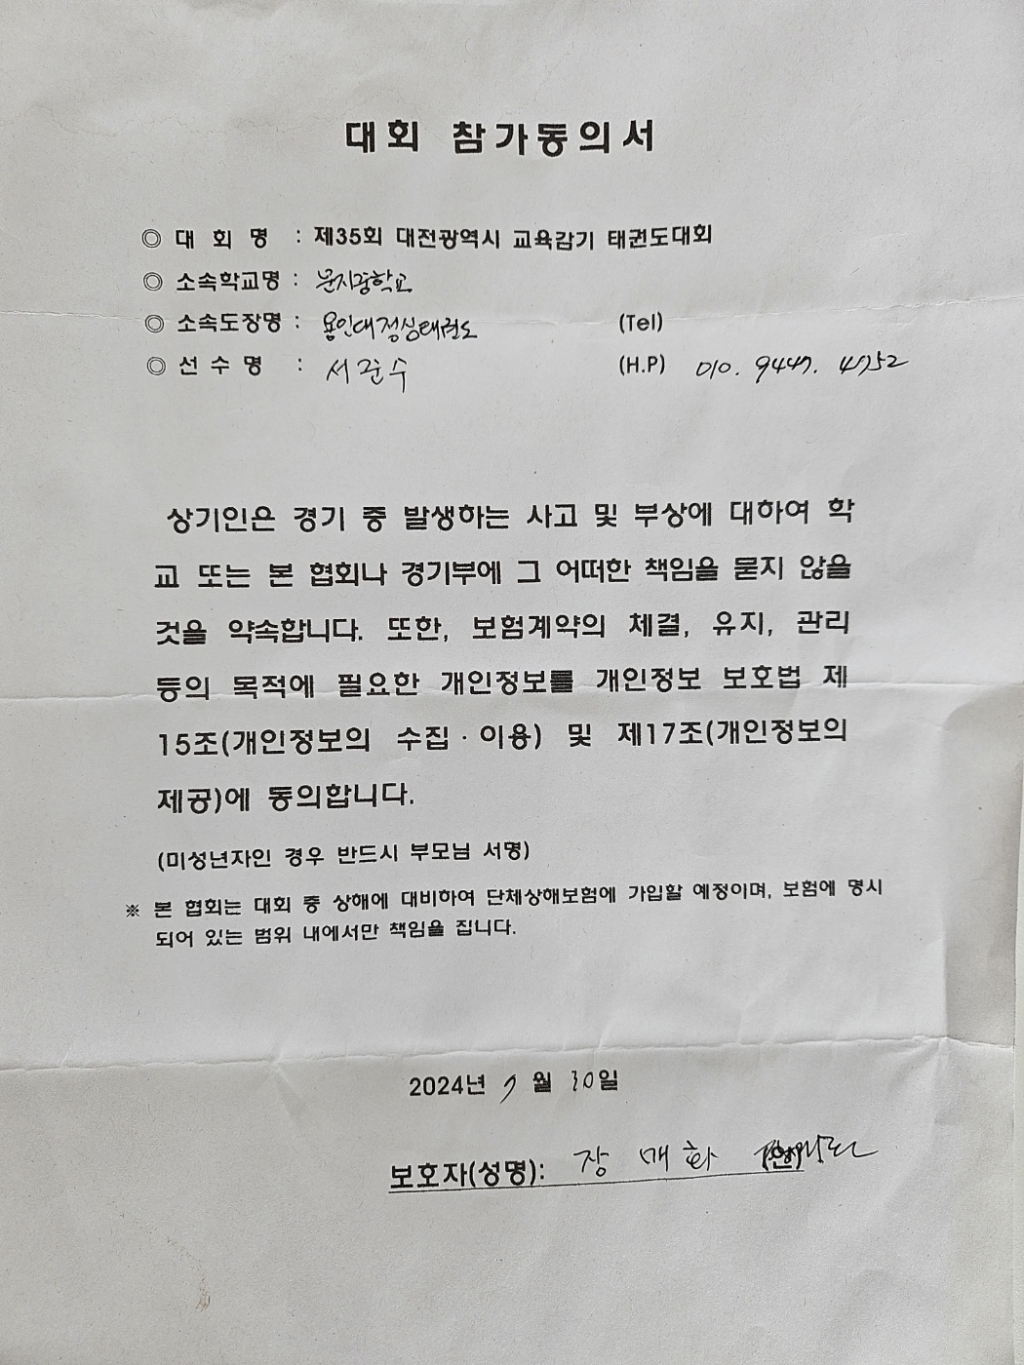 대회 참가동의서
◎ 대 회 명 : 제35회 대전광역시 교육감기 태권도대회
◎ 소속학교명 : 문지중학교
◎ 소속도장명 : 용인대정심태권도 (Tel)
◎ 선 수 명 : 서준수 (H.P) 010. 9447. 4752
상기인은 경기 중 발생하는 사고 및 부상에 대하여 학
교 또는 본 협회나 경기부에 그 어떠한 책임을 묻지 않을
것을 약속합니다. 또한, 보험계약의 체결, 유지, 관리
등의 목적에 필요한 개인정보를 개인정보 보호법 제
15조(개인정보의 수집·이용) 및 제17조(개인정보의
제공)에 동의합니다.
(미성년자인 경우 반드시 부모님 서명)
※ 본 협회는 대회 중 상해에 대비하여 단체상해보험에 가입할 예정이며, 보험에 명시
되어 있는 범위 내에서만 책임을 집니다.
2024년 7월 30일
보호자(성명): 장 매 화 (인)